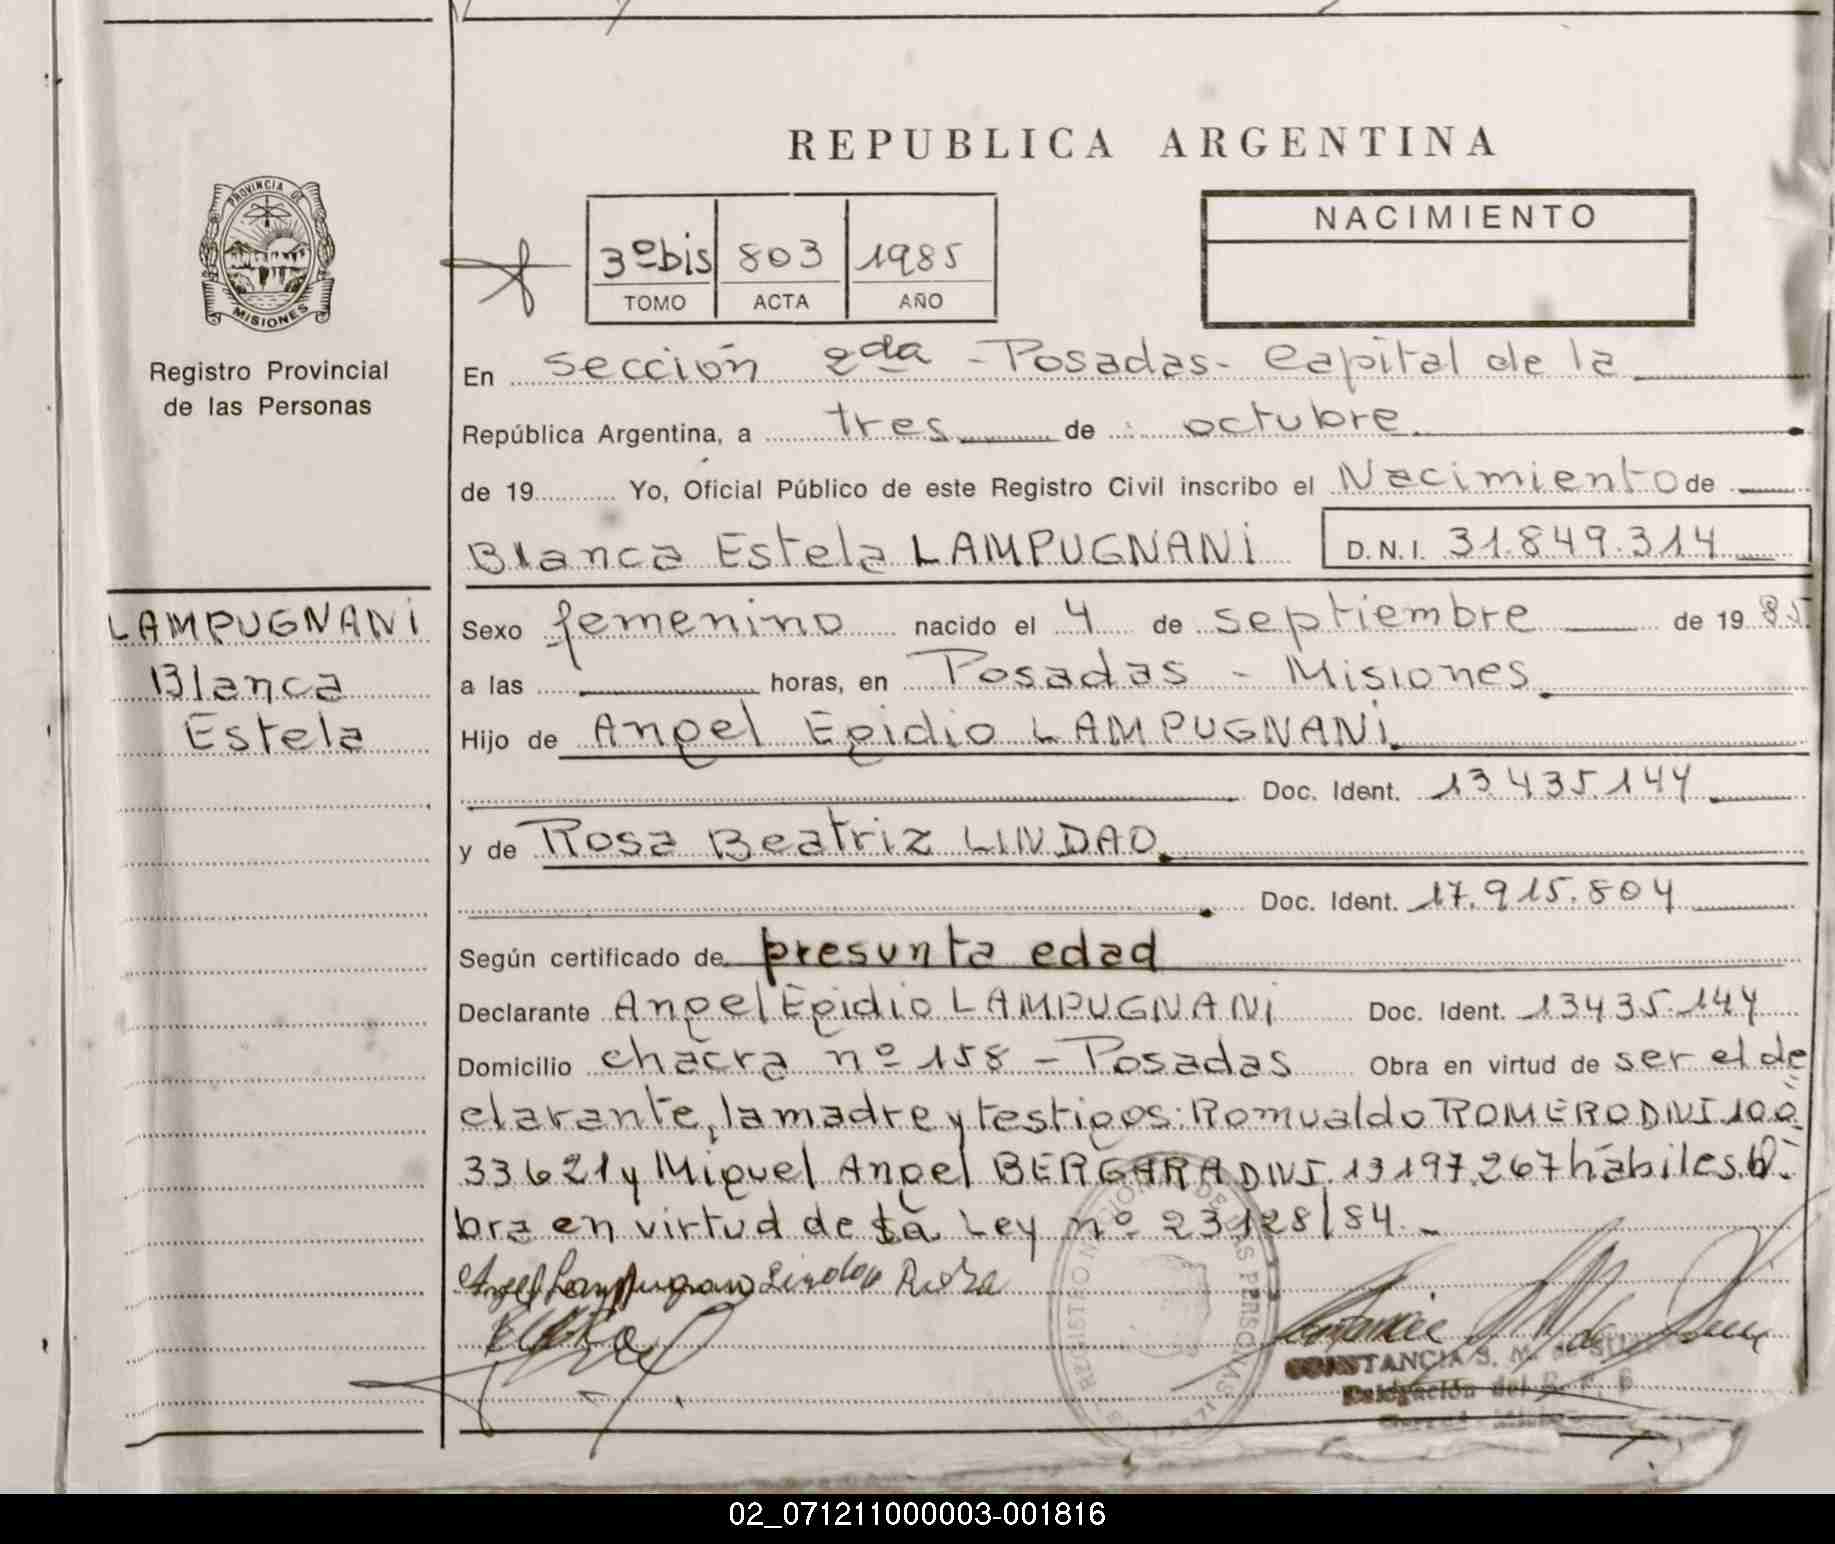 REPUBLICA ARGENTINA
PROVINCIA DE
MISIONES
Registro Provincial
de las Personas
3º bis 803 1985
TOMO ACTA AÑO
NACIMIENTO
En sección 2da - Posadas - Capital de la
República Argentina, a tres de octubre
de 19 Yo, Oficial Público de este Registro Civil inscribo el Nacimiento de
Blanca Estela LAMPUGNANI D.N.I. 31.849.314
LAMPUGNANI
Blanca
Estela
Sexo femenino nacido el 4 de septiembre de 1985
a las horas, en Posadas - Misiones
Hijo de Angel Egidio LAMPUGNANI
Doc. Ident. 13.435.144
y de Rosa Beatriz LINDAO
Doc. Ident. 17.915.804
Según certificado de presunta edad
Declarante Angel Egidio LAMPUGNANI Doc. Ident. 13435.144
Domicilio chacra nº 158 - Posadas Obra en virtud de ser el de
clarante, la madre y testigos: Romualdo ROMERO DNI 10.0
33621 y Miguel Angel BERGARA DNI. 13197.267 hábiles. O
bra en virtud de la Ley nº 23128/84.-
Lindao Rosa
REGISTRO DE LAS PERSONAS
CONSTANCIA S. M. de
Delegación del R. P. P
02_071211000003-001816